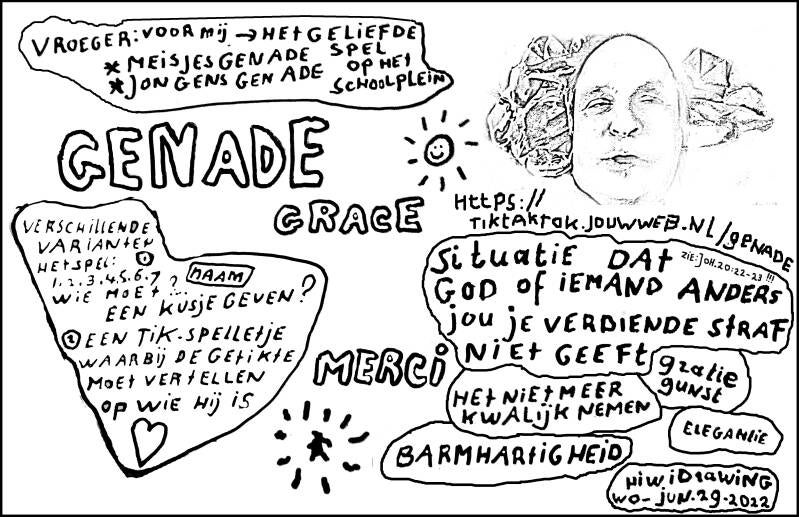 VROEGER: VOOR MIJ → HET GELIEFDE SPEL OP HET SCHOOLPLEIN
* MEISJESGENADE
* JONGENSGENADE
GENADE
GRACE
HTTPS://
TIKTAKTAK.JOUWWEB.NL/GENADE
VERSCHILLENDE
VARIANTEN
HET SPEL: 1
1.2.3.4.5.6.7 ?
WIE MOET ... NAAM
EEN KUSJE GEVEN?
2 EEN TIK-SPELLETJE
WAARBIJ DE GETIKTE
MOET VERTELLEN
OP WIE HIJ IS
SITUATIE DAT ZIE: JOH.20:22-23 !!!
GOD OF IEMAND ANDERS
JOU JE VERDIENDE STRAF
NIET GEEFT
MERCI
gratie
gunst
HET NIET MEER
KWALIJK NEMEN
ELEGANTIE
BARMHARTIGHEID
HiWiDrawing
WO-JUN.29-2022